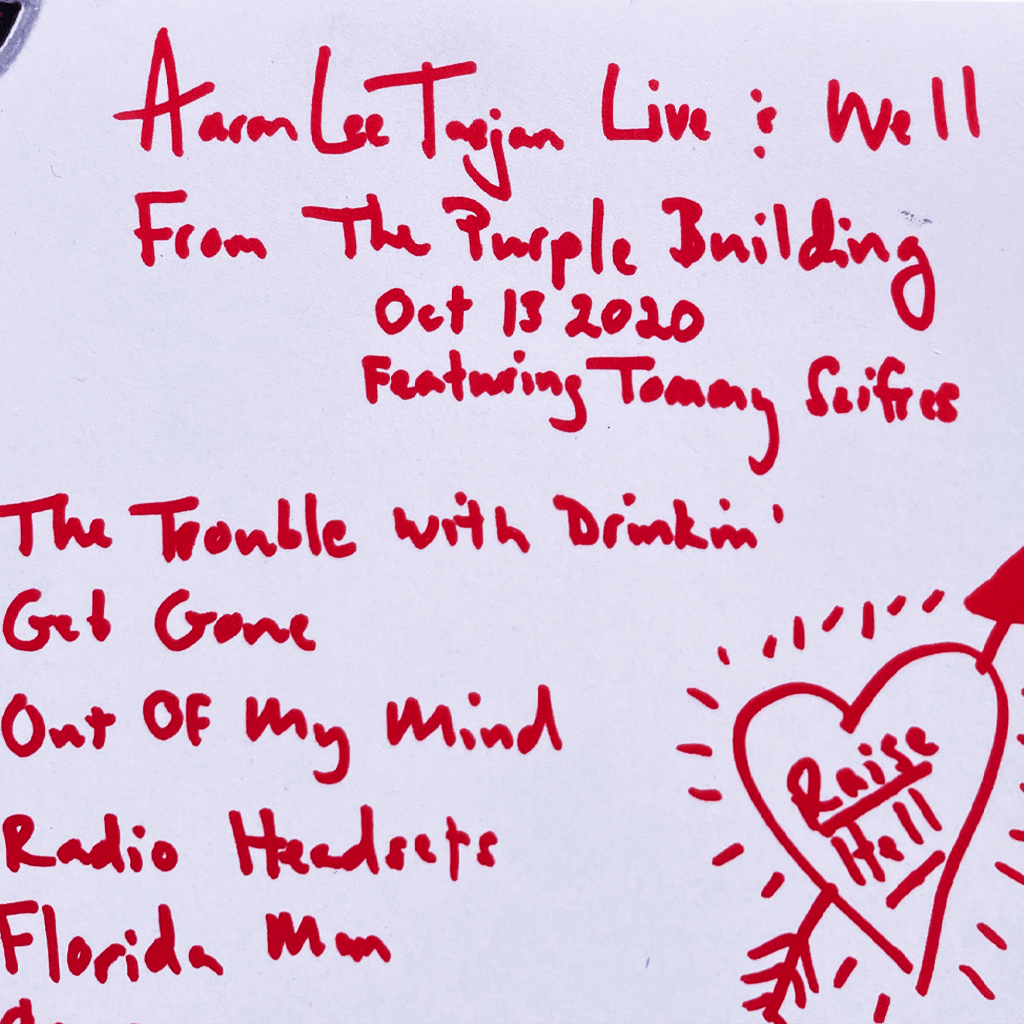 Aaron Lee Tasjan Live & Well
From The Purple Building
Oct 13 2020
Featuring Tommy Scifres
The Trouble with Drinkin'
Get Gone
Out Of My Mind
Radio Headsets
Florida Man
Raise
Hell